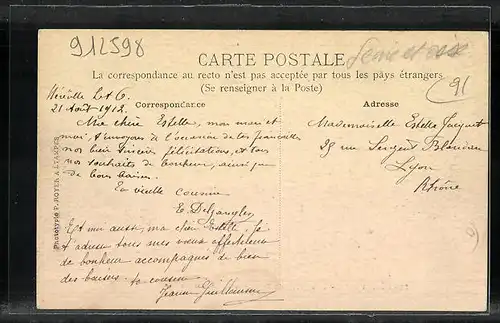 912598
Seine et oise
CARTE POSTALE
91
La correspondance au recto n'est pas acceptée par tous les pays étrangers
(Se renseigner à la Poste)
Correspondance
21 Août 1912
Ma chère Estelle, mon mari et
moi, t'envoyons à l'occasion de tes fiançailles
nos bien sincères félicitations, et tous
nos souhaits de bonheur, ainsi que
de bons baisers.
Ta vieille cousine
E. Delzangles
Et moi aussi, ma chère Estelle, je
t'adresse tous mes vœux affectueux
de bonheur accompagnés de bien
des baisers. ta cousine
Jeanne Guillaumin
Adresse
Mademoiselle Estelle Jacquet
rue Sergent Blandan
Lyon
Rhône
Phototypie P. ROYER à ETAMPES